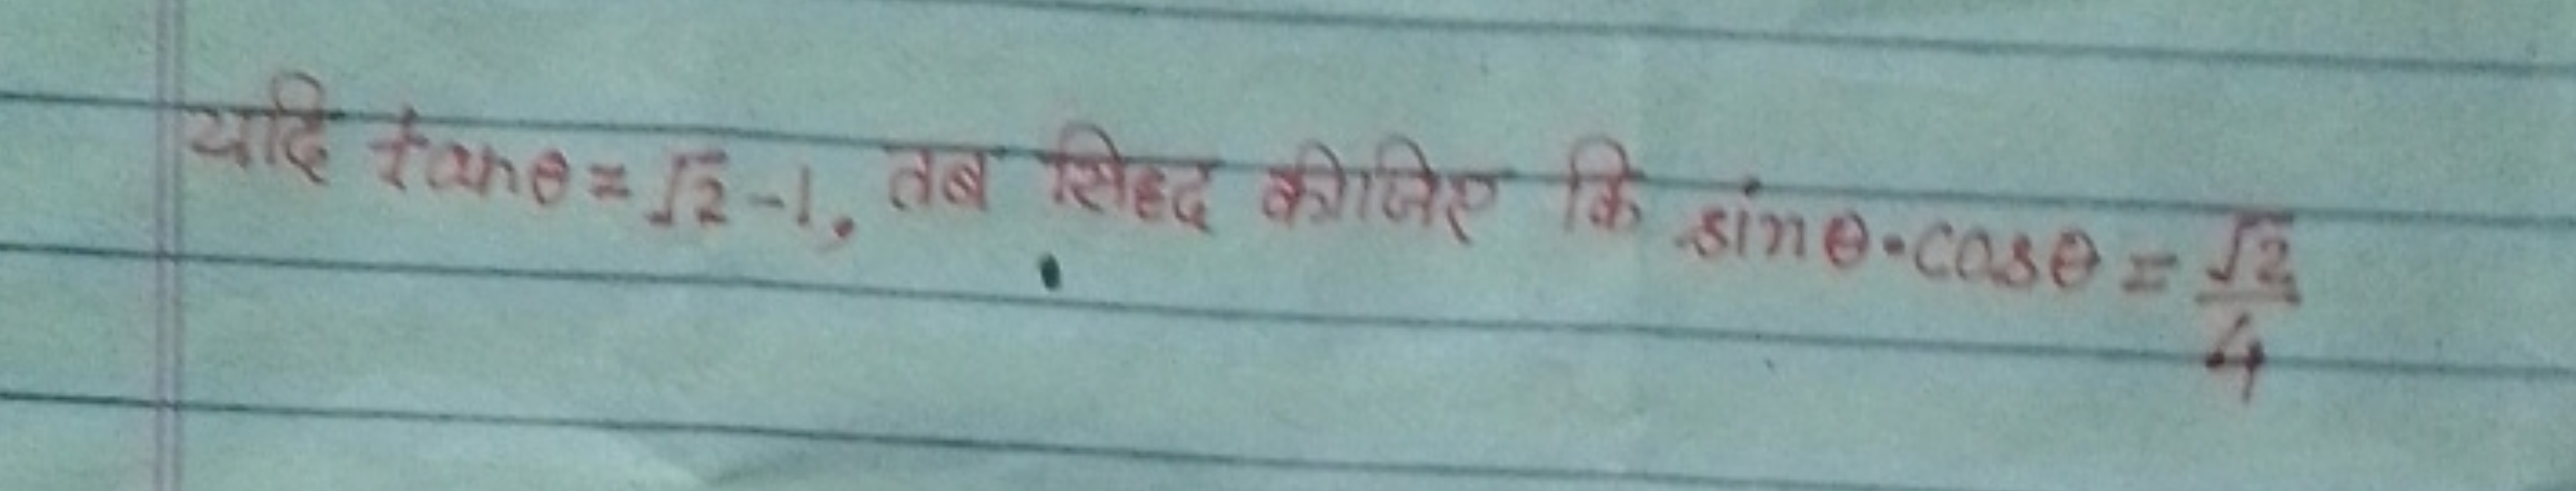 यदि tanθ = √2 - 1, तब सिद्ध कीजिए कि sinθ·cosθ = √2/4